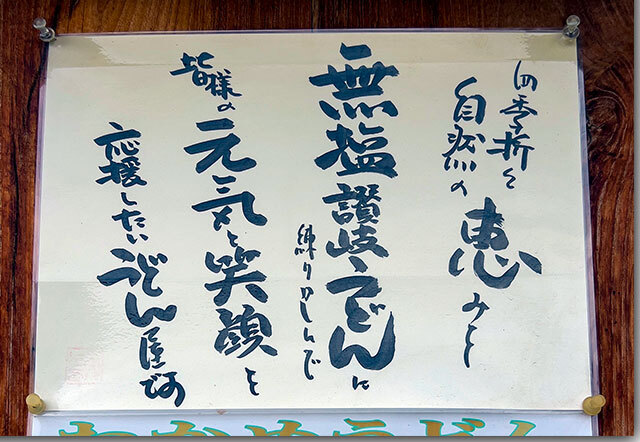 四季折々
自然の恵みを
無塩讃岐うどんに
練りこんで
皆様の元気と笑顔を
応援したいうどん屋です
わかめうどん